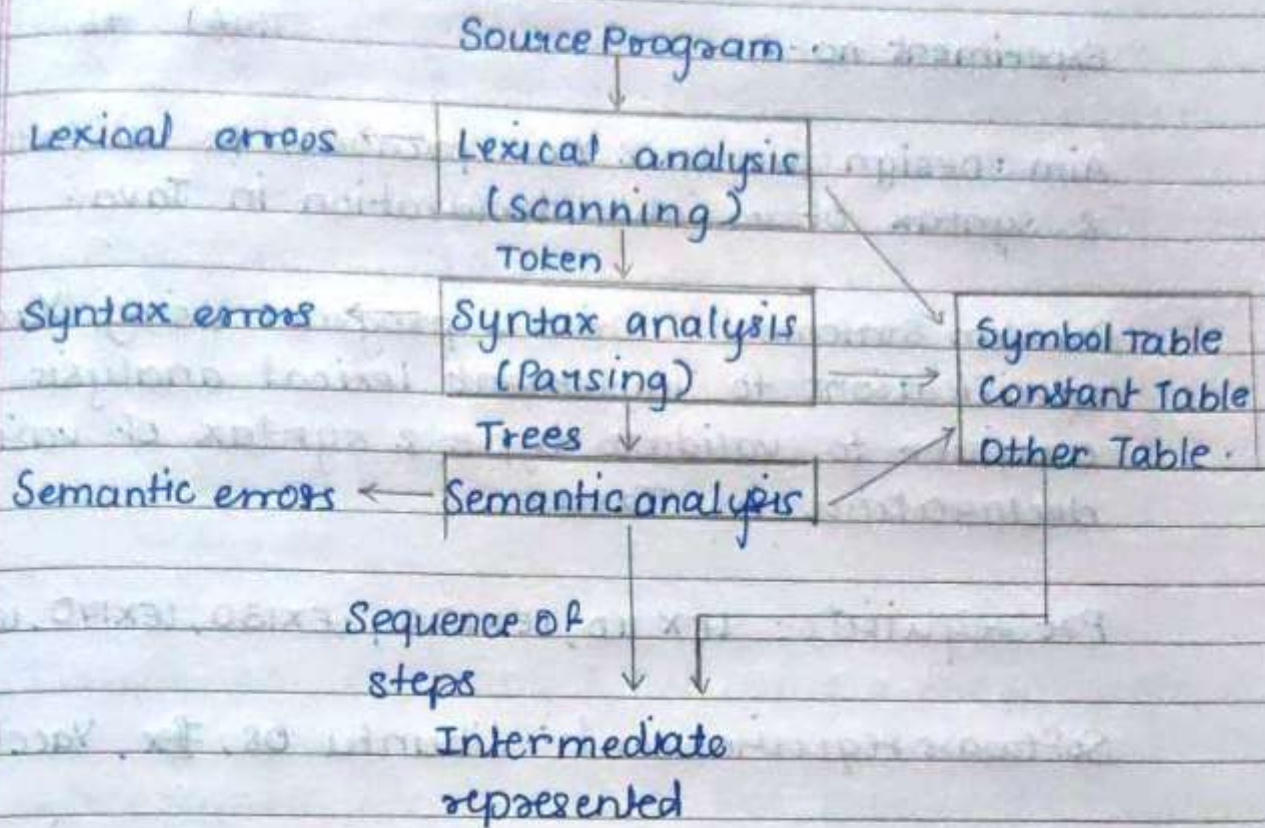 Source Program
Lexical errors
Lexical analysis
(scanning)
Token
Syntax errors
Syntax analysis
(Parsing)
Symbol Table
Constant Table
Other Table.
Trees
Semantic errors
Semantic analysis
Sequence of
steps
Intermediate
represented